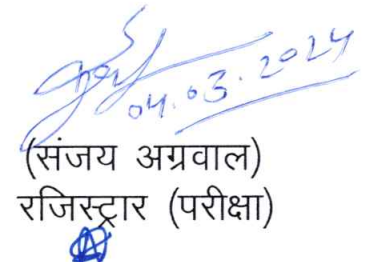 04.03.2024
(संजय अग्रवाल)
रजिस्ट्रार (परीक्षा)